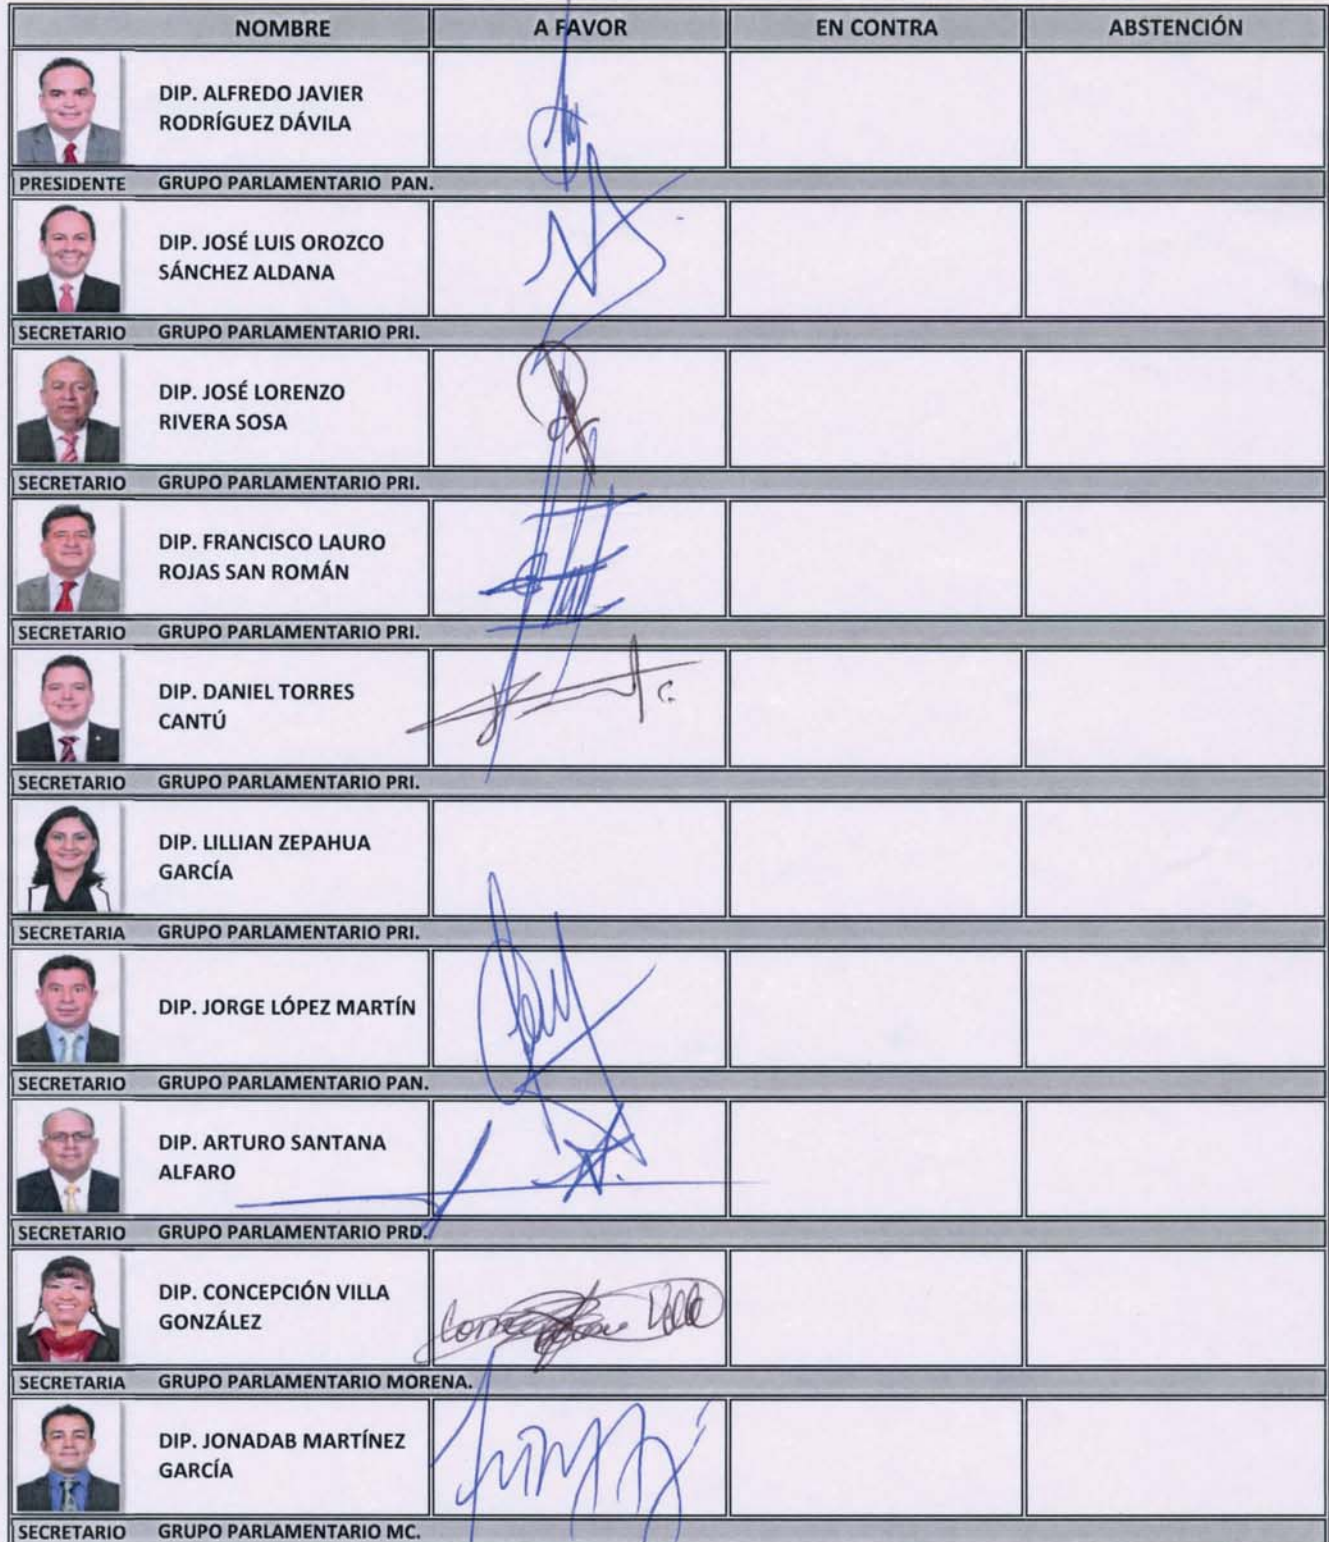 NOMBRE A FAVOR EN CONTRA ABSTENCIÓN
DIP. ALFREDO JAVIER
RODRÍGUEZ DÁVILA
PRESIDENTE GRUPO PARLAMENTARIO PAN.
DIP. JOSÉ LUIS OROZCO
SÁNCHEZ ALDANA
SECRETARIO GRUPO PARLAMENTARIO PRI.
DIP. JOSÉ LORENZO
RIVERA SOSA
SECRETARIO GRUPO PARLAMENTARIO PRI.
DIP. FRANCISCO LAURO
ROJAS SAN ROMÁN
SECRETARIO GRUPO PARLAMENTARIO PRI.
DIP. DANIEL TORRES
CANTÚ
SECRETARIO GRUPO PARLAMENTARIO PRI.
DIP. LILLIAN ZEPAHUA
GARCÍA
SECRETARIA GRUPO PARLAMENTARIO PRI.
DIP. JORGE LÓPEZ MARTÍN
SECRETARIO GRUPO PARLAMENTARIO PAN.
DIP. ARTURO SANTANA
ALFARO
SECRETARIO GRUPO PARLAMENTARIO PRD.
DIP. CONCEPCIÓN VILLA
GONZÁLEZ
SECRETARIA GRUPO PARLAMENTARIO MORENA.
DIP. JONADAB MARTÍNEZ
GARCÍA
SECRETARIO GRUPO PARLAMENTARIO MC.